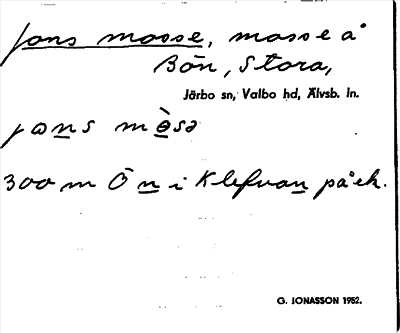 Jons mosse, mosse å
Bön, Stora,
Järbo sn, Valbo hd, Älvsb. ln.
jons mòsə
300 m Ö n i Klefvan på ek.
G. JONASSON 1952.